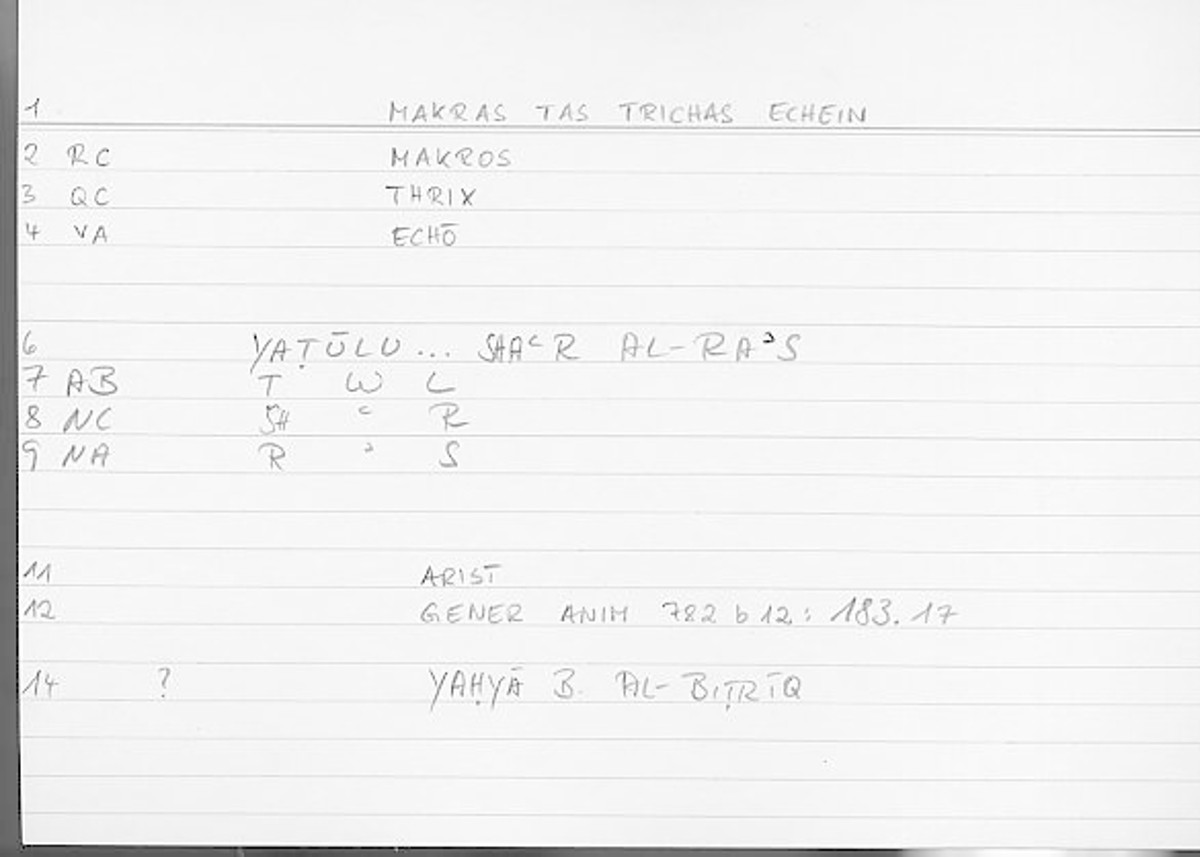 1 MAKRAS TAS TRICHAS ECHEIN
2 RC MAKROS
3 QC THRIX
4 VA ECHŌ
6 YAṬŪLU... SHAᶜR AL-RAᵓS
7 AB T W L
8 NC SH ᶜ R
9 NA R ᵓ S
11 ARIST
12 GENER ANIM 782 b 12: 183.17
14 ? YAḤYĀ B. AL-BIṬRĪQ